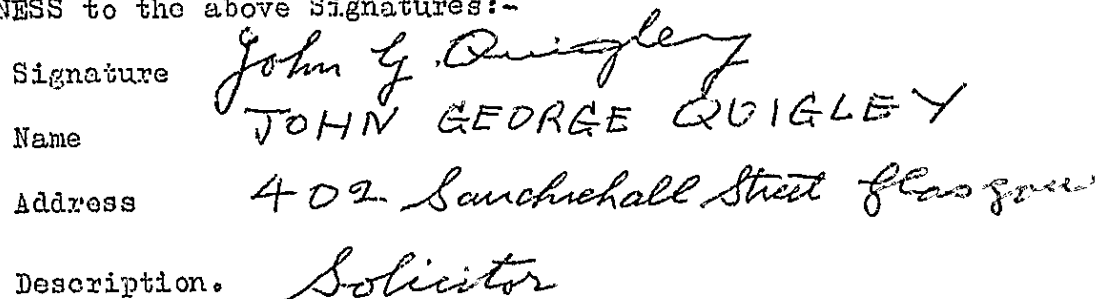 NESS to the above Signatures:-
Signature John G. Quigley
Name JOHN GEORGE QUIGLEY
Address 402 Sauchiehall Street Glasgow
Description. Solicitor